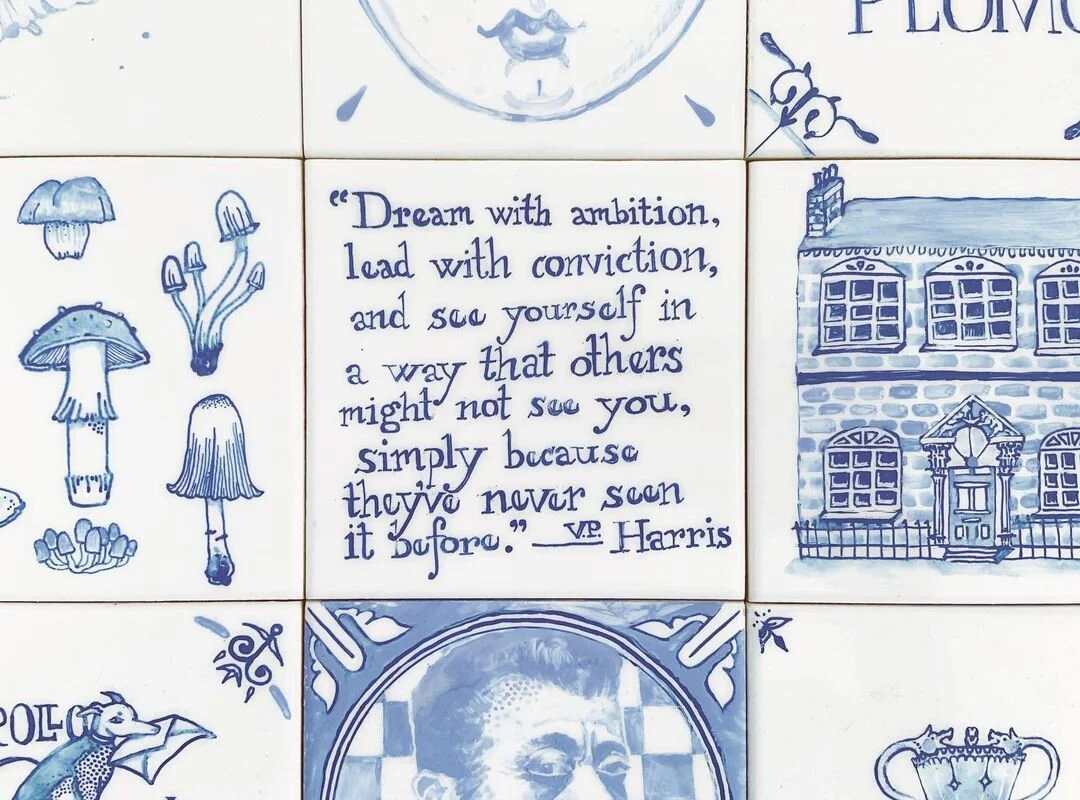 “Dream with ambition,
lead with conviction,
and see yourself in
a way that others
might not see you,
simply because
they've never seen
it before.” — V.P. Harris